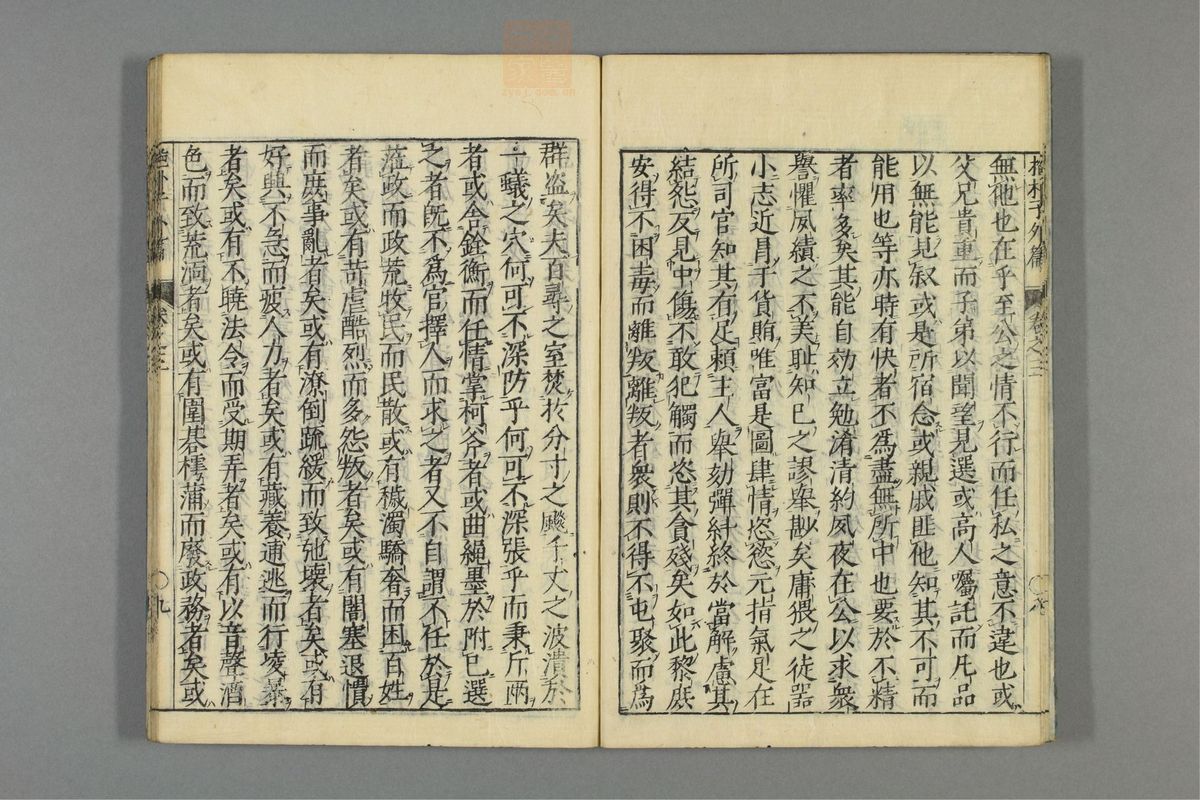 抱朴子外篇 卷之三 八
無他也在乎至公之情不行而任私之意不違也或
父兄貴重而子弟以聞望見選或高人屬託而凡品
以無能見叙或是所宿念或親戚匪他知其不可而
能用也等亦時有快者不為盡無所中也要於不精
者率多矣其能自効立勉滫清約夙夜在公以求衆
譽懼風績之不美耻知已之謬舉尠矣庸猥之徒器
小志近冐于貨賄唯富是圖肆情恣慾无指氣足在
所司官知其有足賴主人舉劾彈紏終於當解慮其
結怨反見中傷不敢犯觸而恣其貪殘矣如此黎庶
安得不困毒而離叛離叛者衆則不得不屯聚而為
群盗矣夫百尋之室焚於分寸之飈千丈之波潰於
一蟻之穴何可不深防乎何可不深張乎而秉斤兩
者或舍銓衡而任情掌柯斧者或曲繩墨於附已選
之者既不為官擇人而求之者又不自謂不任於是
蒞政而政荒牧民而民散或有穢濁驕奢而困百姓
者矣或有苛虐酷烈而多怨叛者矣或有闇塞退憒
而庶事亂者矣或有潦倒疏緩而致弛壊者矣或有
好興不急而疲人力者矣或有藏養逋逃而行凌暴
者矣或有不曉法令而受期弄者矣或有以音聲酒
色而致荒湎者矣或有圍碁樗蒲而廢政務者矣或
外篇 九